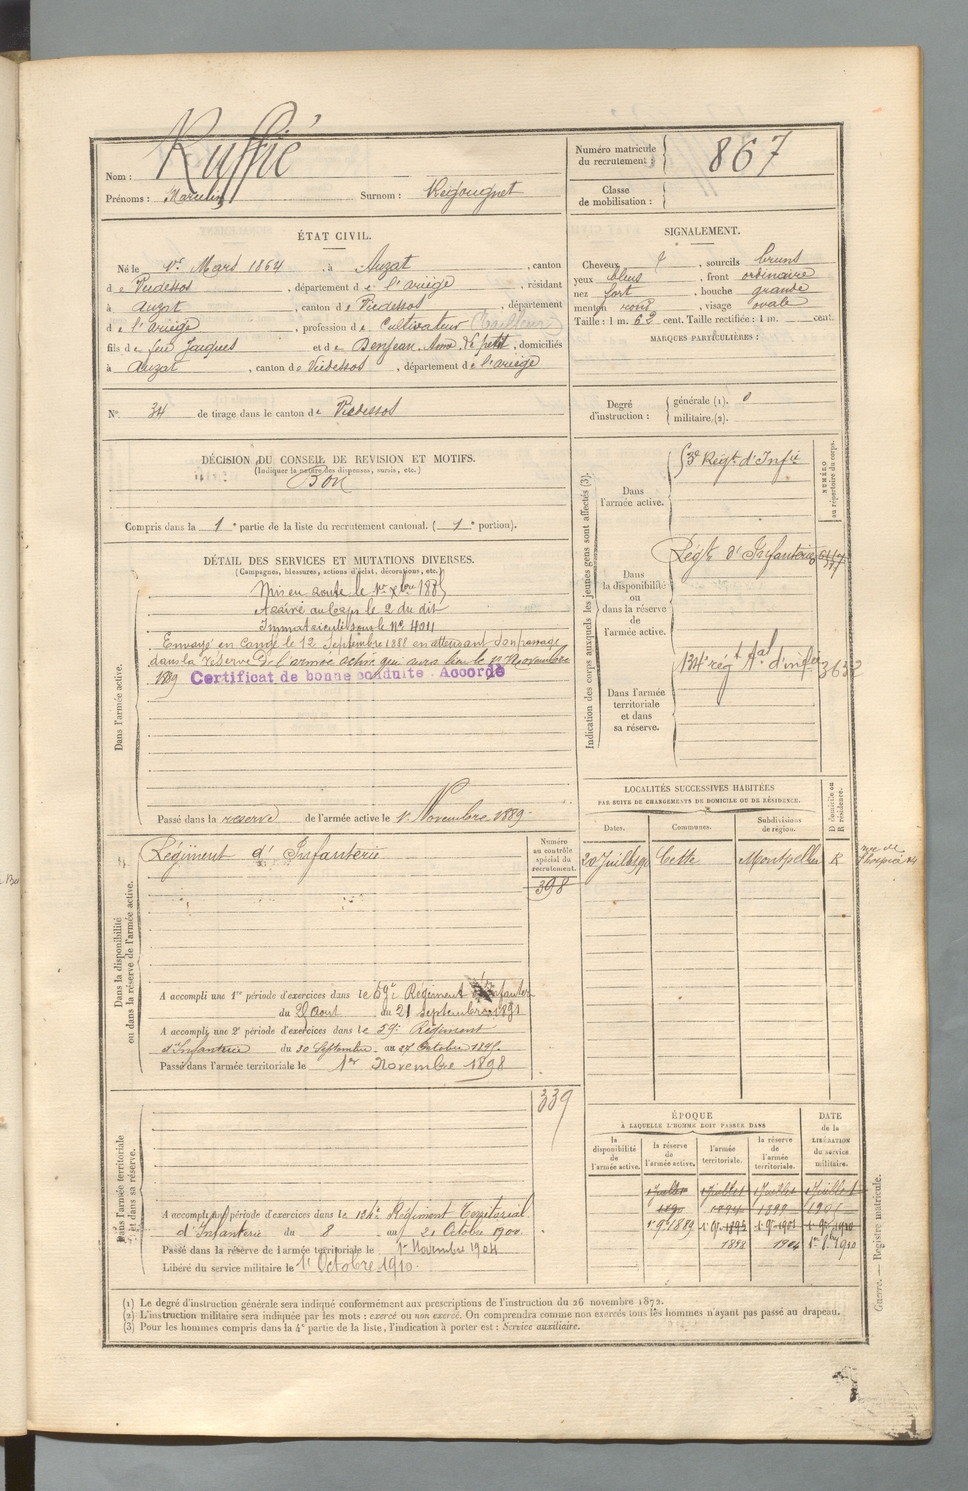 Nom : Ruffié
Prénoms : Marcelin Surnom :
Numéro matricule du recrutement : 867
Classe de mobilisation :
ÉTAT CIVIL.
Né le 1er Mars 1864, à Auzat, canton
de Vicdessos, département de l'ariège, résidant
à auzat, canton de Vicdessos, département
de l'ariège, profession de Cultivateur (tailleur)
fils de feu Jacques et de Benjean, domiciliés
à auzat, canton de Vicdessos, département de l'ariège
N° 34 de tirage dans le canton de Vicdessos
SIGNALEMENT.
Cheveux, sourcils bruns
yeux bleus, front ordinaire
nez fort, bouche grande
menton rond, visage ovale
Taille : 1 m. 62 cent. Taille rectifiée : 1 m. cent.
MARQUES PARTICULIÈRES :
Degré d'instruction : générale (1). 0
militaire (2).
DÉCISION DU CONSEIL DE REVISION ET MOTIFS.
(Indiquer la nature des dispenses, sursis, etc.)
Bon
Compris dans la 1e partie de la liste du recrutement cantonal. (1e portion).
DÉTAIL DES SERVICES ET MUTATIONS DIVERSES.
(Campagnes, blessures, actions d'éclat, décorations, etc.)
Dans l'armée active.
Mis en route le 1er Xbre 188
Arrivé au Corps le 2 du dit
Immatriculé sous le N°
Envoyé en Congé le 12 Septembre 1888 en attendant son passage
dans la réserve de l'armée active qui aura lieu le 1er Novembre
1889 Certificat de bonne conduite Accordé
Passé dans la reserve de l'armée active le 1er Novembre 1889.
Indication des corps auxquels les jeunes gens sont affectés (3).
NUMÉRO au répertoire du corps.
Dans l'armée active. Régt. d'Infie
Dans la disponibilité ou dans la réserve de l'armée active. Régt. d'Infanterie
Dans l'armée territoriale et dans sa réserve. 134e régt tal d'infie 3632
LOCALITÉS SUCCESSIVES HABITÉES
PAR SUITE DE CHANGEMENTS DE DOMICILE OU DE RÉSIDENCE.
Dates. Communes. Subdivisions de région. D domicile ou R résidence.
20 Juillet Cette Montpellier R rue de
Dans la disponibilité ou dans la réserve de l'armée active.
Régiment d'Infanterie
Numéro au contrôle spécial du recrutement.
398
A accompli une 1re période d'exercices dans le 59e Régiment d'Infanterie
du Août au 21 Septembre 1891
A accompli une 2e période d'exercices dans le 59e Régiment
d'Infanterie du 30 Septembre au 27 Octobre
Passé dans l'armée territoriale le 1er Novembre 1898
Dans l'armée territoriale et dans sa réserve.
339
A accompli une période d'exercices dans le 134e Régiment Territorial
d'Infanterie du 8 au 21 Octobre 1900
Passé dans la réserve de l'armée territoriale le 1er Novembre 1904
Libéré du service militaire le 1er Octobre 1910.
ÉPOQUE
À LAQUELLE L'HOMME DOIT PASSER DANS
la disponibilité de l'armée active. la réserve de l'armée active. l'armée territoriale. la réserve de l'armée territoriale.
DATE de la LIBÉRATION du service militaire.
1 Juillet 1 Juillet 1 Juillet 1 Juillet
1890 1894 1899
1889
1898 1904 1910
(1) Le degré d'instruction générale sera indiqué conformément aux prescriptions de l'instruction du 26 novembre 1872.
(2) L'instruction militaire sera indiquée par les mots : exercé ou non exercé. On comprendra comme non exercés tous les hommes n'ayant pas passé au drapeau.
(3) Pour les hommes compris dans la 4e partie de la liste, l'indication à porter est : Service auxiliaire.
Guerre. — Registre matricule.